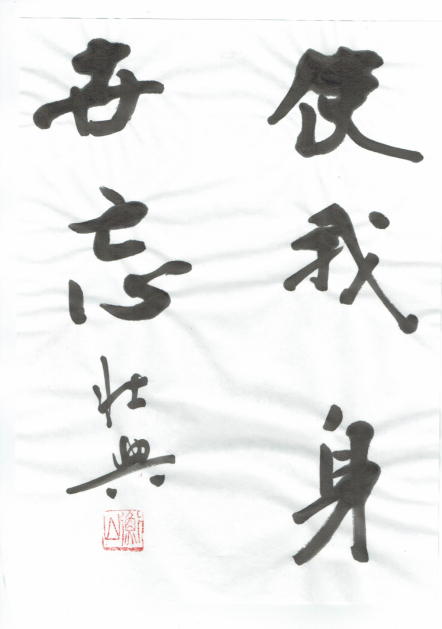 使我身
世忘
壮典